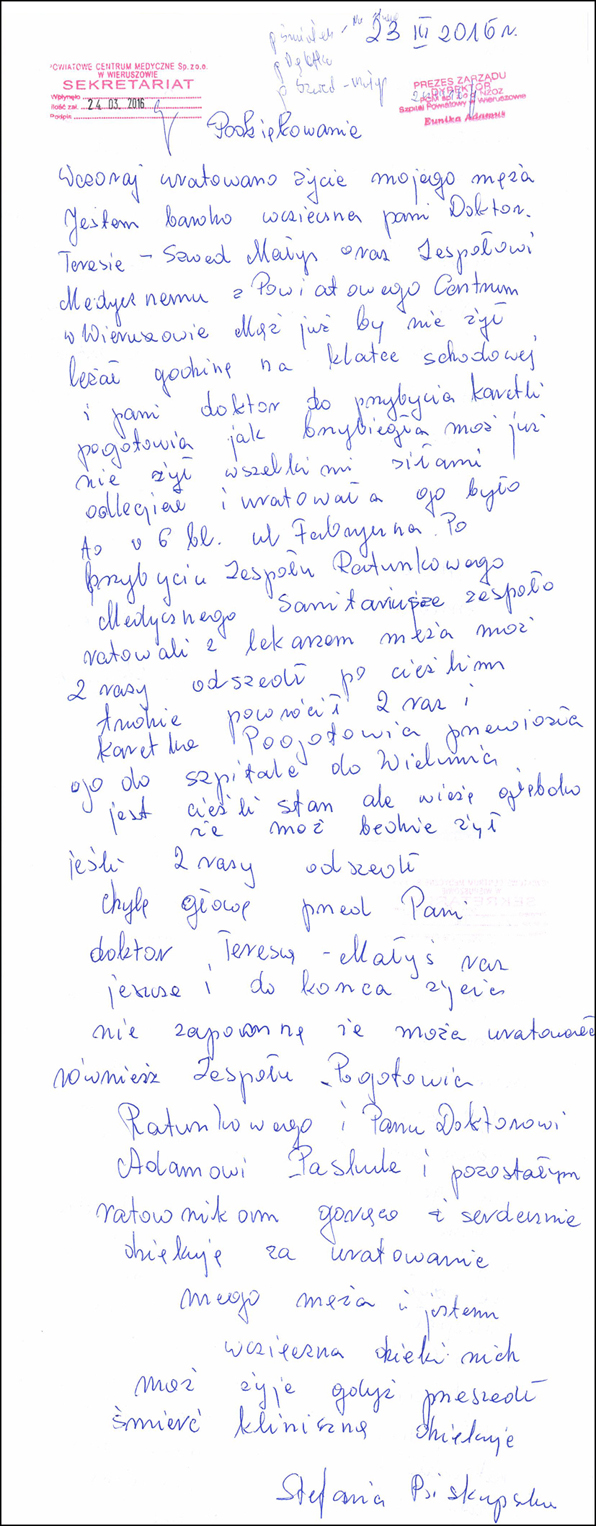 23 III 2016 r.
POWIATOWE CENTRUM MEDYCZNE Sp. z o.o.
W WIERUSZOWIE
SEKRETARIAT
Wpłynęło
Ilość zał. 24. 03. 2016
Podpis
PREZES ZARZĄDU
DYREKTOR
Szpital Powiatowy w Wieruszowie
Eunika Adamus
Podziękowanie
Wczoraj uratowano życie mojego męża
Jestem bardzo wdzieczna pani Doktor.
Teresie - Szwed Małys oraz Zespołowi
Medycznemu z Powiatowego Centrum
w Wieruszowie Mąż już by nie żył
leżał godzinę na klatce schodowej
i pani doktor do przybycia karetki
pogotowia jak przybiegła mąż już
nie żył wszelkimi siłami
i uratowała go było
to v 6 bl. ul Fabryczna. Po
przybyciu Zespołu Ratunkowego
Medycznego Sanitariusze zespoło
ratowali z lekarzem męża mąż
2 razy odszedł po cieśkim
trudnie powrócił 2 raz i
karetka Pogotowia przewiozła
go do szpitala do Wielunia
jest cieśki stan ale wieżę głęboko
że mąż bednie żył
jeśli 2 razy odszedł
chylę głowę pned Pam
doktor Teresą - Małyś raz
jeszcze i do konca życia
nie zapomnę że męża uratowała
również Zespołu Pogotowia
Ratunkowego i Panu Doktorowi
Adamowi Paskude i pozostałym
ratownikom gorąco i serdecznie
dziekuję za uratowanie
mego męża i jestem
wdzięczna dzieki nich
mąż żyje gdyż pneszedł
śmierć kliniczną dziekuje
Stefania Biskupska